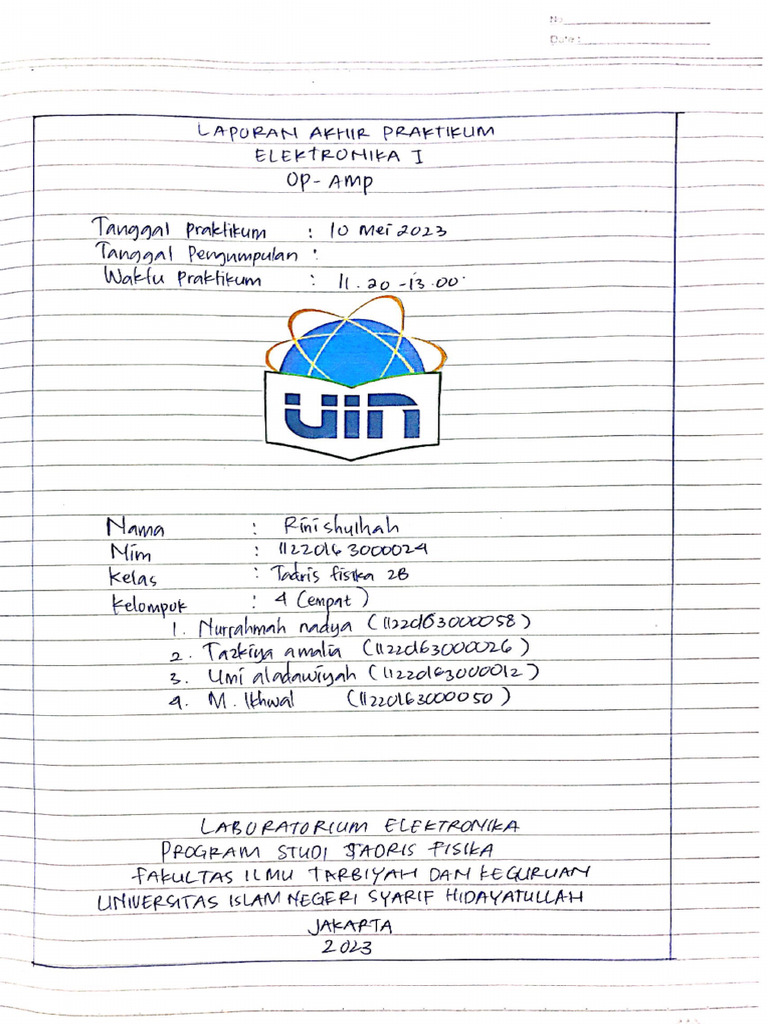 No
Date :
LAPORAN AKHIR PRAKTIKUM
ELEKTRONIKA I
OP-AMP
Tanggal praktikum : 10 Mei 2023
Tanggal Pengumpulan :
Waktu praktikum : 11.20 - 13.00
uin
Nama : Rini shulhah
Nim : 11220163000024
Kelas : Tadris fisika 2B
Kelompok : 4 (empat)
1. Nurrahmah nadya (11220163000058)
2. Tazkiya amalia (11220163000026)
3. Umi aladawiyah (11220163000012)
4. M. Ikhwal (11220163000050)
LABORATORIUM ELEKTRONIKA
PROGRAM STUDI TADRIS FISIKA
FAKULTAS ILMU TARBIYAH DAN KEGURUAN
UNIVERSITAS ISLAM NEGERI SYARIF HIDAYATULLAH
JAKARTA
2023